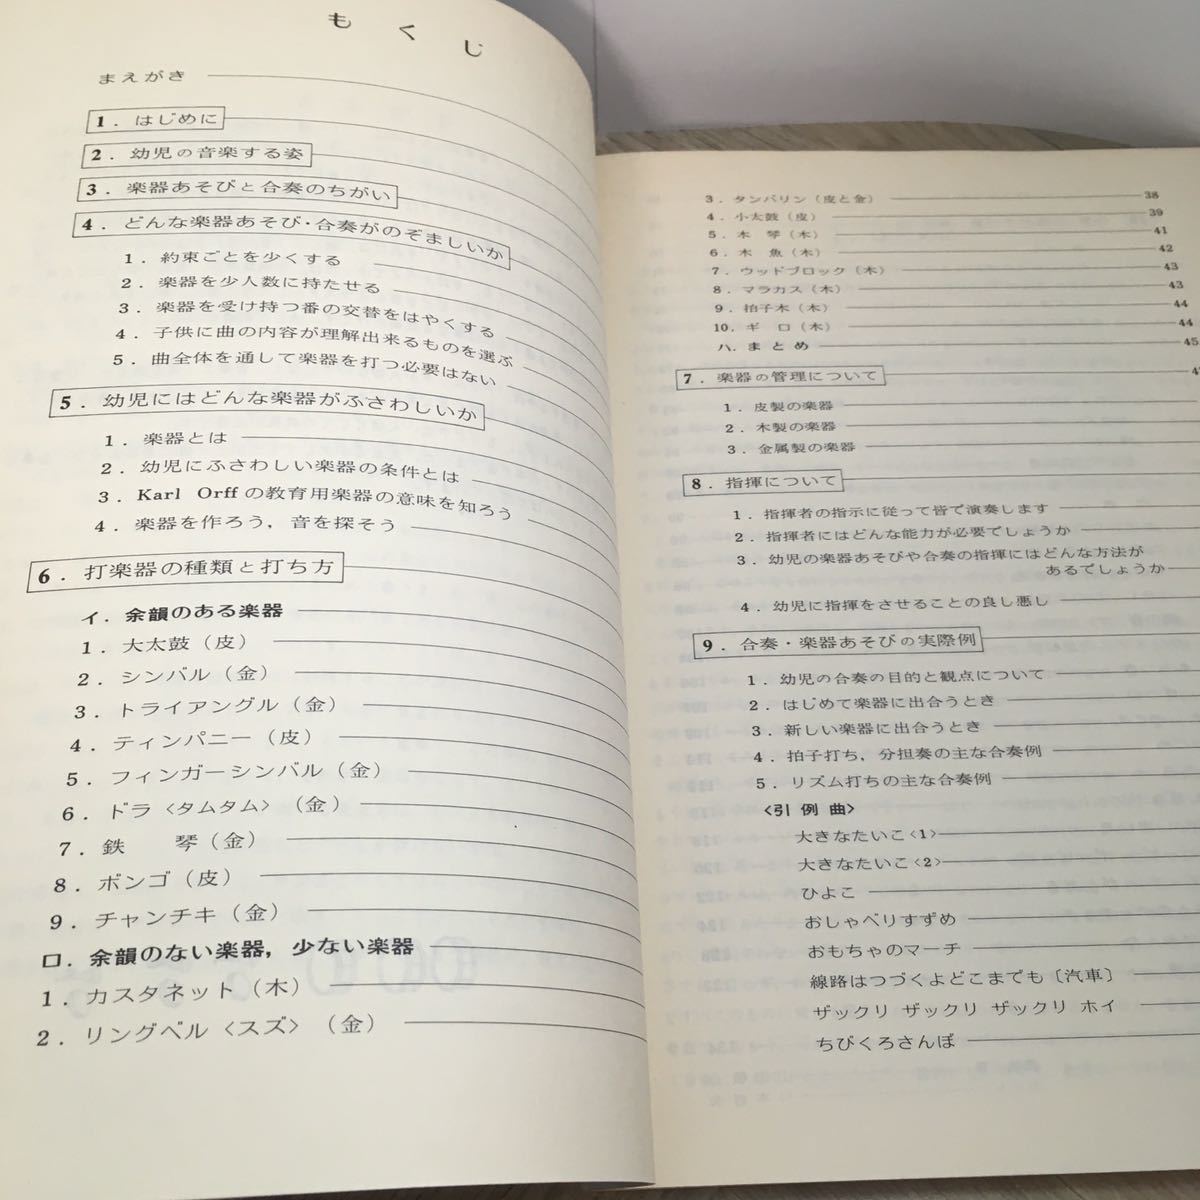 もくじ
まえがき
1．はじめに
2．幼児の音楽する姿
3．楽器あそびと合奏のちがい
4．どんな楽器あそび・合奏がのぞましいか
1．約束ごとを少くする
2．楽器を少人数に持たせる
3．楽器を受け持つ番の交替をはやくする
4．子供に曲の内容が理解出来るものを選ぶ
5．曲全体を通して楽器を打つ必要はない
5．幼児にはどんな楽器がふさわしいか
1．楽器とは
2．幼児にふさわしい楽器の条件とは
3．Karl Orffの教育用楽器の意味を知ろう
4．楽器を作ろう，音を探そう
6．打楽器の種類と打ち方
イ．余韻のある楽器
1．大太鼓（皮）
2．シンバル（金）
3．トライアングル（金）
4．ティンパニー（皮）
5．フィンガーシンバル（金）
6．ドラ〈タムタム〉（金）
7．鉄　琴（金）
8．ボンゴ（皮）
9．チャンチキ（金）
ロ．余韻のない楽器，少ない楽器
1．カスタネット（木）
2．リングベル〈スズ〉（金）
3．タンバリン（皮と金） 38
4．小太鼓（皮） 39
5．木　琴（木） 41
6．木　魚（木） 42
7．ウッドブロック（木） 43
8．マラカス（木） 43
9．拍子木（木） 44
10．ギ　ロ（木） 44
ハ．まとめ 45
7．楽器の管理について
1．皮製の楽器
2．木製の楽器
3．金属製の楽器
8．指揮について
1．指揮者の指示に従って皆で演奏します
2．指揮者にはどんな能力が必要でしょうか
3．幼児の楽器あそびや合奏の指揮にはどんな方法が
あるでしょうか
4．幼児に指揮をさせることの良し悪し
9．合奏・楽器あそびの実際例
1．幼児の合奏の目的と観点について
2．はじめて楽器に出合うとき
3．新しい楽器に出合うとき
4．拍子打ち，分担奏の主な合奏例
5．リズム打ちの主な合奏例
〈引例曲〉
大きなたいこ〈1〉
大きなたいこ〈2〉
ひよこ
おしゃべりすずめ
おもちゃのマーチ
線路はつづくよどこまでも〔汽車〕
ザックリ ザックリ ザックリ ホイ
ちびくろさんぼ